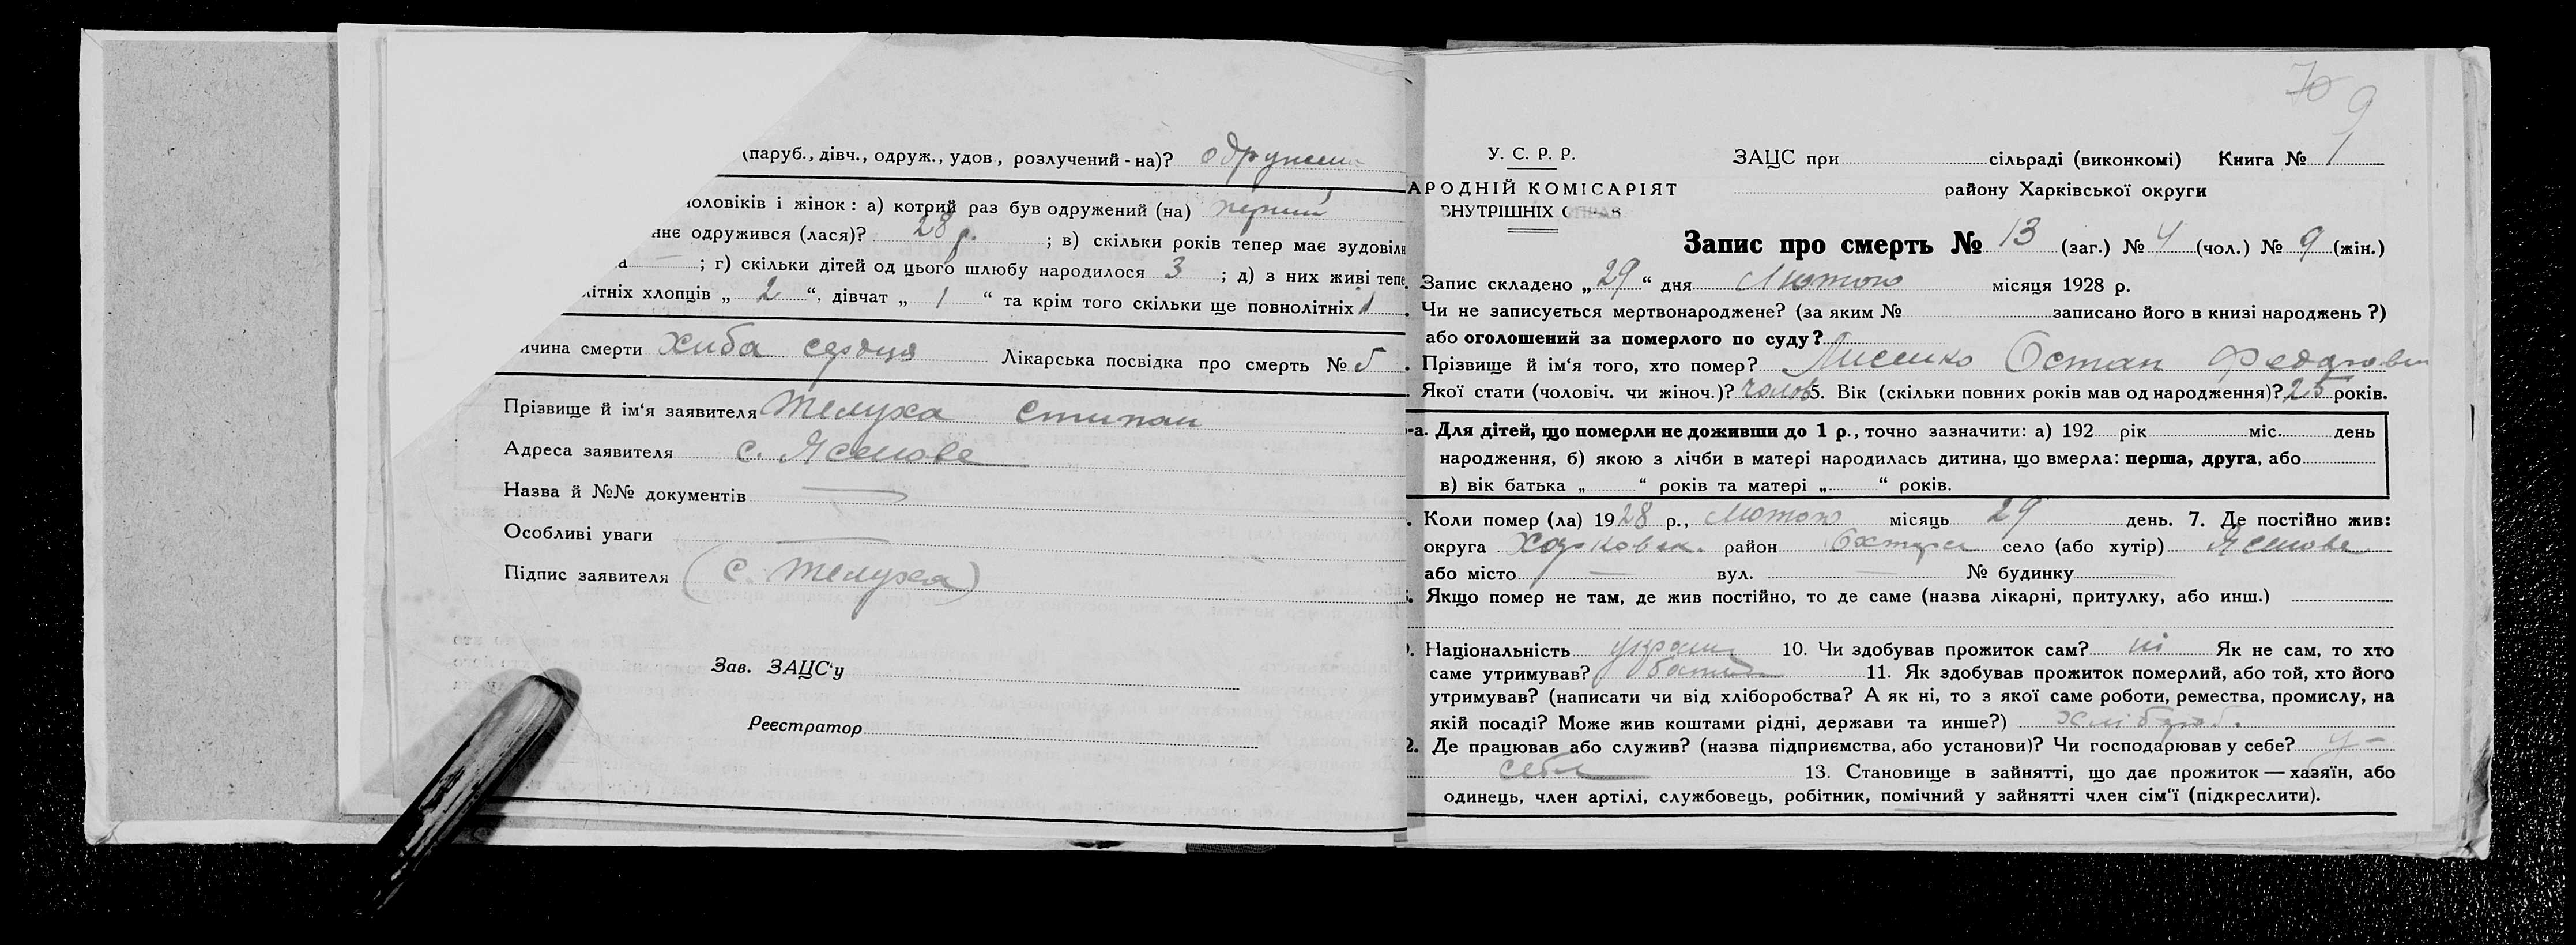 (паруб., дівч., одруж., удов., розлучений-на)? одружена
чоловіків і жінок: а) котрий раз був одружений (на) перший
одружився (лася)? 28 р. ; в) скільки років тепер має
; г) скільки дітей од цього шлюбу народилося 3 ; д) з них живі
хлопців „ 2 “, дівчат „ 1 “ та крім того скільки ще повнолітніх 1
смерти хиба сердця Лікарська посвідка про смерть № 5
Прізвище й ім‘я заявителя Телуха Стипан
Адреса заявителя с. Ясенове
Назва й №№ документів —
Особливі уваги —
Підпис заявителя (С. Телуха)
Зав. ЗАЦС‘у
Реєстратор
70 9
У. С. Р. Р.
АРОДНІЙ КОМІСАРІЯТ
ВНУТРІШНІХ СПРАВ
ЗАЦС при сільраді (виконкомі) Книга № 1
району Харківської округи
Запис про смерть № 13 (заг.) № 4 (чол.) № 9 (жін.)
Запис складено „ 29 “ дня Лютого місяця 1928 р.
Чи не записується мертвонароджене? (за яким № записано його в книзі народжень ?)
або оголошений за померлого по суду?
Прізвище й ім‘я того, хто помер? Лисенко Остап Федорович
Якої стати (чоловіч. чи жіноч.)? чолов 5. Вік (скільки повних років мав од народження)? 25 років.
-а. Для дітей, що померли не доживши до 1 р., точно зазначити: а) 192 рік міс. день
народження, б) якою з лічби в матері народилась дитина, що вмерла: перша, друга, або
в) вік батька „ “ років та матері „ “ років.
Коли помер (ла) 1928 р., Лютого місяць 29 день. 7. Де постійно жив:
округа Харковск. район Охтирс село (або хутір) Ясенове
або місто — вул. — № будинку
Якщо помер не там, де жив постійно, то де саме (назва лікарні, притулку, або инш.)
Національність україн 10. Чи здобував прожиток сам? ні Як не сам, то хто
саме утримував? батько 11. Як здобував прожиток померлий, або той, хто його
утримував? (написати чи від хліборобства? А як ні, то з якої саме роботи, ремества, промислу, на
якій посаді? Може жив коштами рідні, держави та инше?) хлібороб.
2. Де працював або служив? (назва підприємства, або установи)? Чи господарював у себе? у -
себе 13. Становище в зайнятті, що дає прожиток — хазяїн, або
одинець, член артілі, службовець, робітник, помічний у зайнятті член сім‘ї (підкреслити).